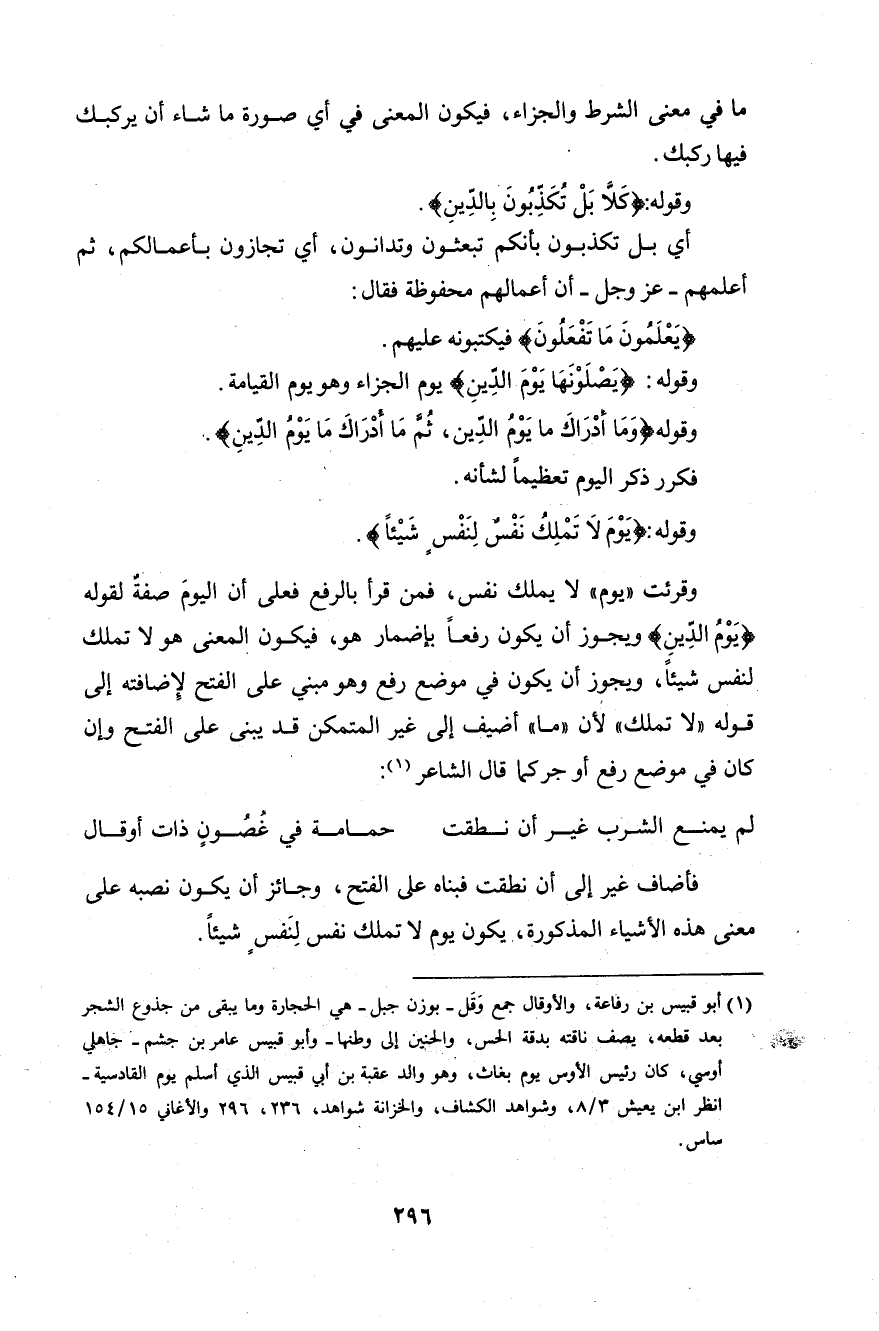 ما في معنى الشرط والجزاء، فيكون المعنى في أي صورة ما شاء أن يركبك
فيها ركبك.
وقوله: ﴿كَلَّا بَلْ تُكَذِّبُونَ بِالدِّينِ﴾.
أي بل تكذبون بأنكم تبعثون وتدانون، أي تجازون بأعمالكم، ثم
أعلمهم - عز وجل - أن أعمالهم محفوظة فقال:
﴿يَعْلَمُونَ مَا تَفْعَلُونَ﴾ فيكتبونه عليهم.
وقوله: ﴿يَصْلَوْنَهَا يَوْمَ الدِّينِ﴾ يوم الجزاء وهو يوم القيامة.
وقوله﴿وَمَا أَدْرَاكَ ما يَوْمُ الدِّين، ثُمَّ مَا أَدْرَاكَ مَا يَوْمُ الدِّينِ﴾.
فكرر ذكر اليوم تعظيماً لشأنه.
وقوله:﴿يَوْمَ لَا تَمْلِكُ نَفْسٌ لِنَفْسٍ شَيْئاً﴾.
وقرئت «يوم» لا يملك نفس، فمن قرأ بالرفع فعلى أن اليومَ صفةٌ لقوله
﴿يَوْمُ الدِّينِ﴾ ويجوز أن يكون رفعاً بإضمار هو، فيكون المعنى هو لا تملك
لنفس شيئاً، ويجوز أن يكون في موضع رفع وهو مبني على الفتح لإضافته إلى
قوله «لا تملك» لأن «ما» أضيف إلى غير المتمكن قد يبنى على الفتح وإن
كان في موضع رفع أو جر كما قال الشاعر (١):
لم يمنع الشرب غير أن نطقت حمامة في غُصُونٍ ذات أوقال
فأضاف غير إلى أن نطقت فبناه على الفتح، وجائز أن يكون نصبه على
معنى هذه الأشياء المذكورة، يكون يوم لا تملك نفس لِنَفسٍ شيئاً.
(١) أبو قبيس بن رفاعة، والأوقال جمع وَقَل - بوزن جبل - هي الحجارة وما يبقى من جذوع الشجر
بعد قطعه، يصف ناقته بدقة الحس، والحنين إلى وطنها - وأبو قبيس عامر بن جشم - جاهلي
أوسي، كان رئيس الأوس يوم بغاث، وهو والد عقبة بن أبي قبيس الذي أسلم يوم القادسية -
انظر ابن يعيش ٨/٣، وشواهد الكشاف، والخزانة شواهد، ٢٣٦، ٢٩٦ والأغاني ١٥٤/١٥
ساس.
٢٩٦